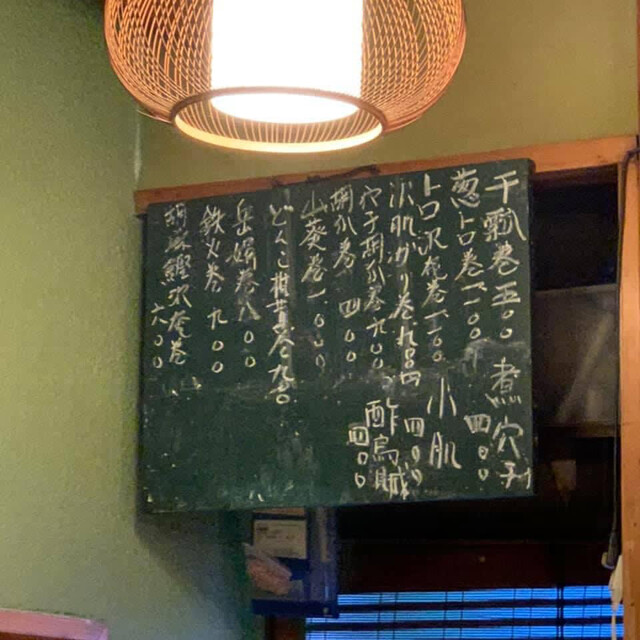 干瓢巻五〇〇
葱トロ巻一一〇〇
トロ沢庵巻一一〇〇
小肌がり巻九〇〇
穴子胡瓜巻九〇〇
胡瓜巻 四〇〇
山葵巻一〇〇〇
どんこ椎茸巻九〇〇
巻八〇〇
鉄火巻 九〇〇
鰹沢庵巻 六〇〇
煮穴子
四〇〇
小肌
四〇〇
酢烏賊
四〇〇